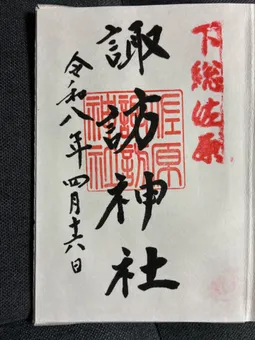 下総佐原
諏訪神社
佐原
諏訪
神社
令和八年四月十六日